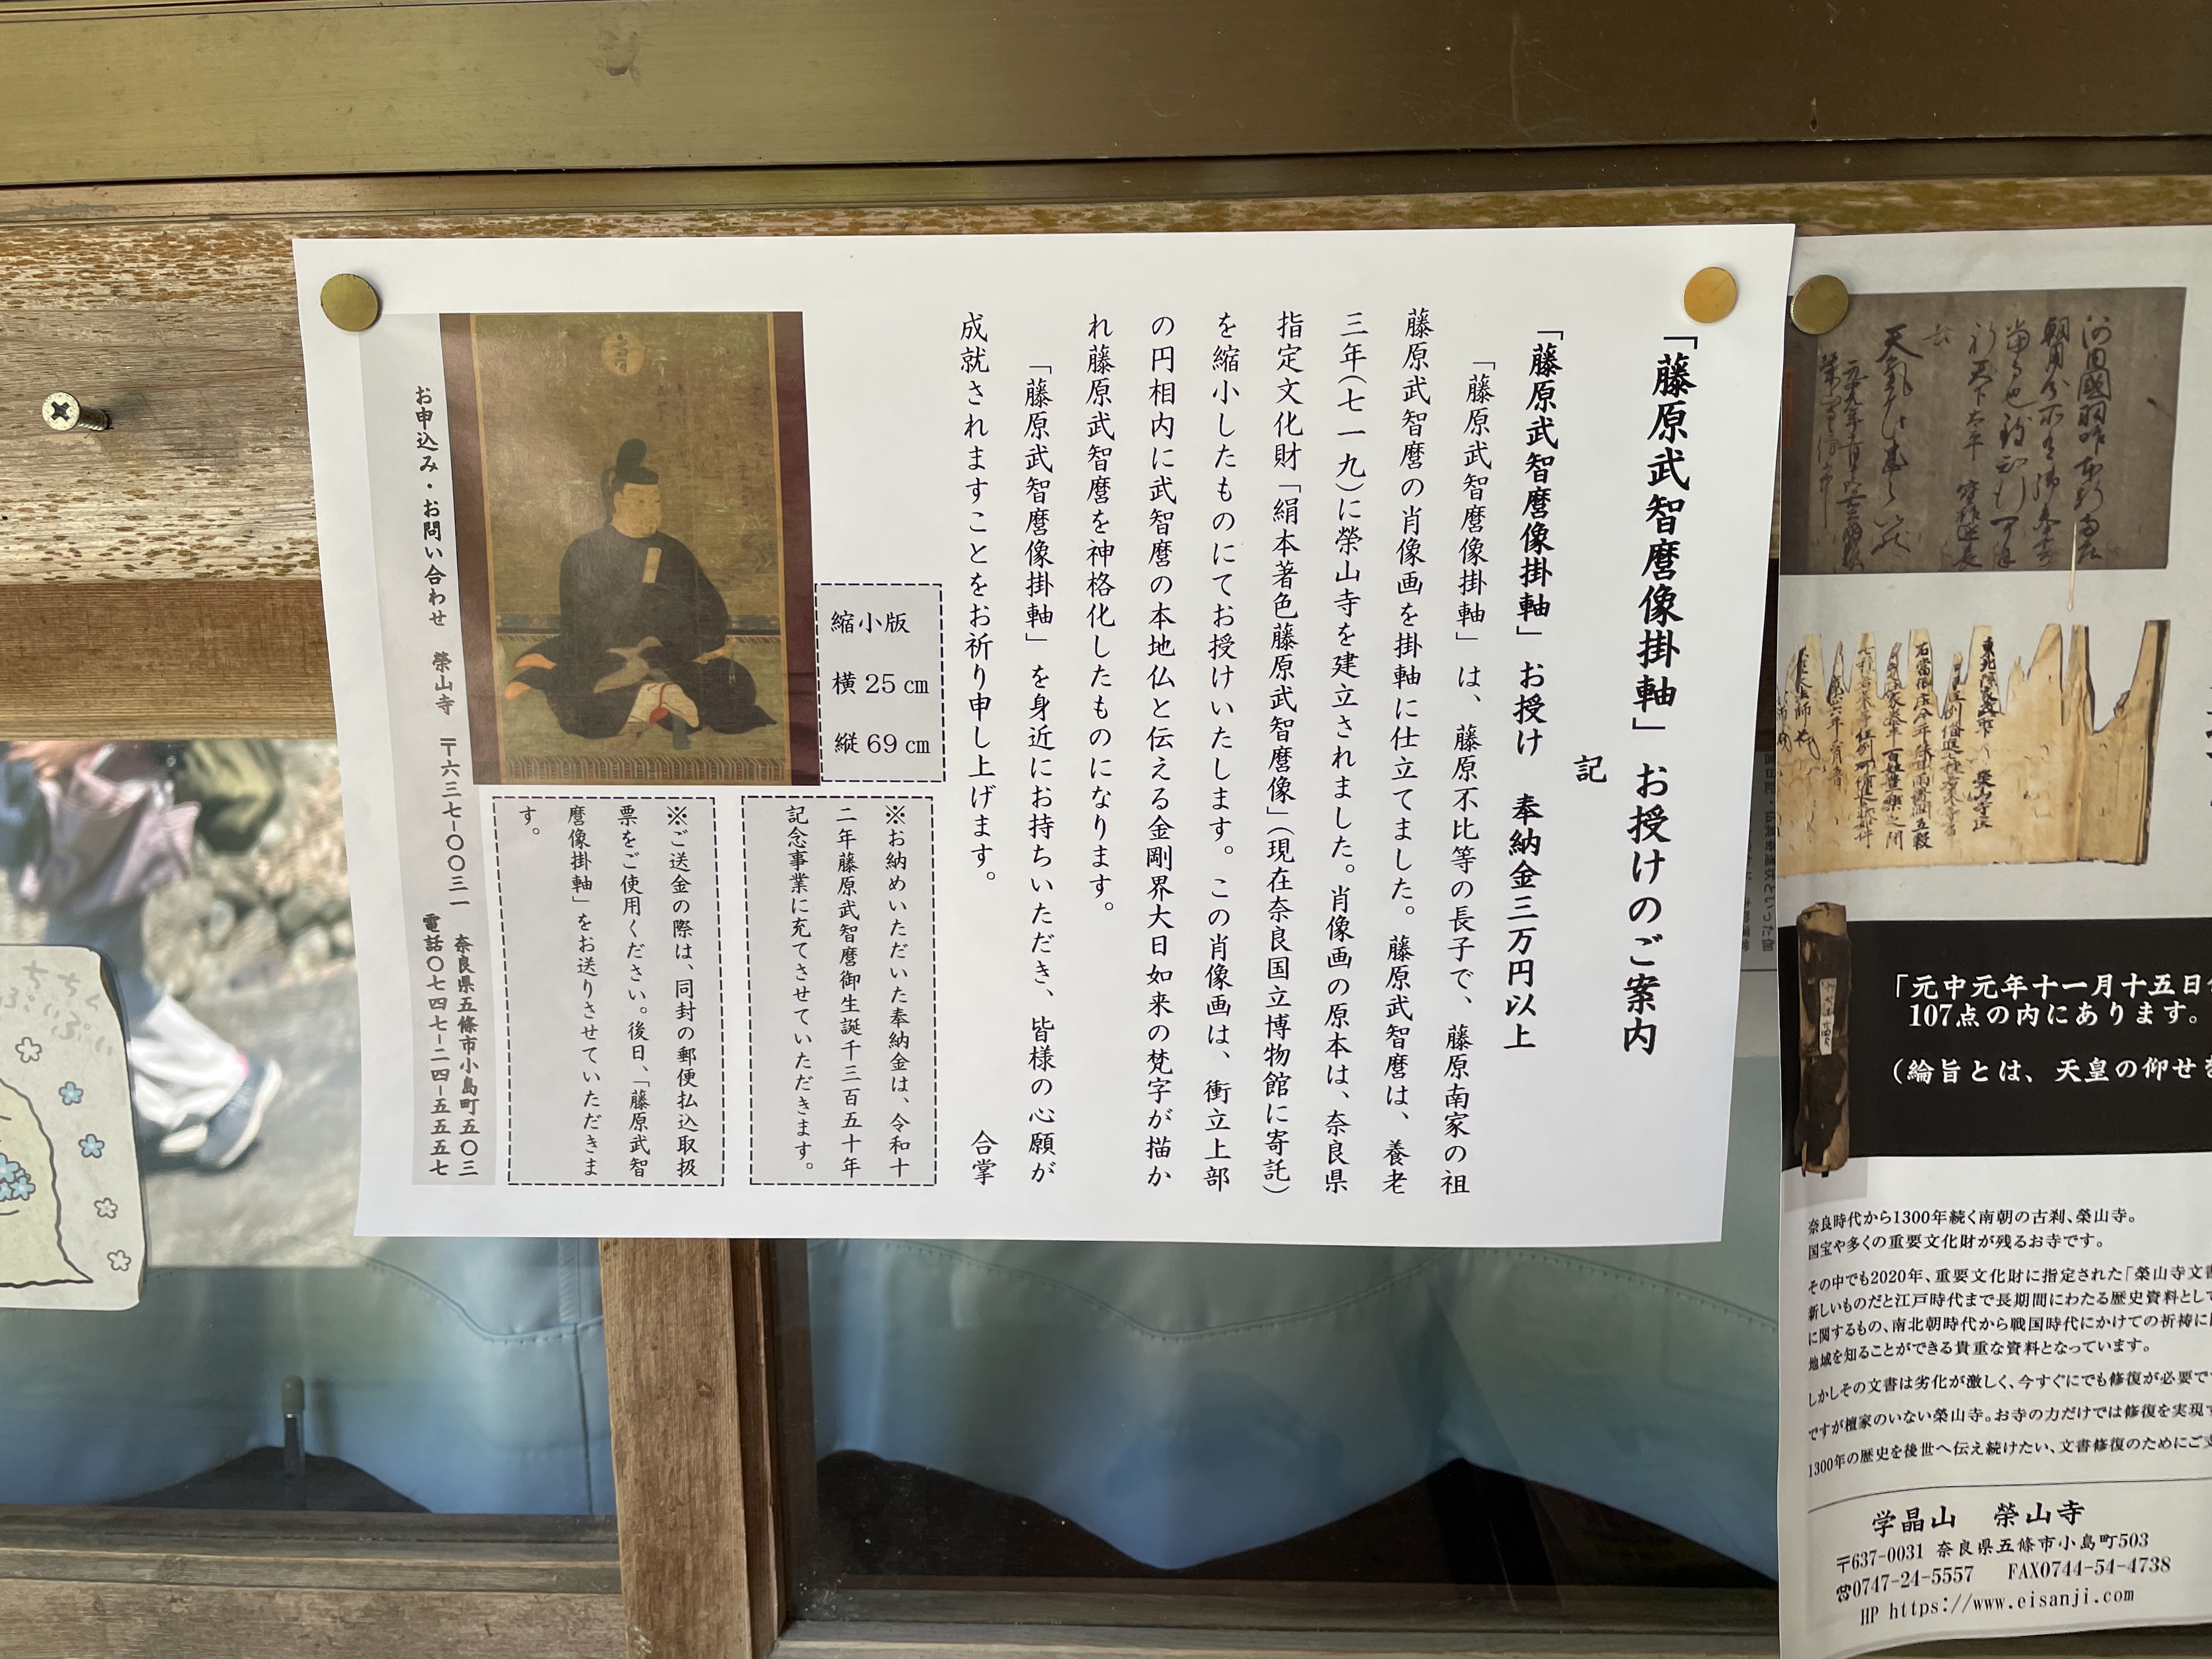 「藤原武智麿像掛軸」お授けのご案内
記
「藤原武智麿像掛軸」お授け　奉納金三万円以上
「藤原武智麿像掛軸」は、藤原不比等の長子で、藤原南家の祖
藤原武智麿の肖像画を掛軸に仕立てました。藤原武智麿は、養老
三年(七一九)に榮山寺を建立されました。肖像画の原本は、奈良県
指定文化財「絹本著色藤原武智麿像」(現在奈良国立博物館に寄託)
を縮小したものにてお授けいたします。この肖像画は、衝立上部
の円相内に武智麿の本地仏と伝える金剛界大日如来の梵字が描か
れ藤原武智麿を神格化したものになります。
「藤原武智麿像掛軸」を身近にお持ちいただき、皆様の心願が
成就されますことをお祈り申し上げます。
合掌
縮小版
横 25 ㎝
縦 69 ㎝
※お納めいただいた奉納金は、令和十
二年藤原武智麿御生誕千三百五十年
記念事業に充てさせていただきます。
※ご送金の際は、同封の郵便払込取扱
票をご使用ください。後日、「藤原武智
麿像掛軸」をお送りさせていただきま
す。
お申込み・お問い合わせ　榮山寺　〒六三七-〇〇三一　奈良県五條市小島町五〇三
電話〇七四七-二四-五五五七
「元中元年十一月十五日
107点の内にあります。
(綸旨とは、天皇の仰せ
奈良時代から1300年続く南朝の古刹、榮山寺。
国宝や多くの重要文化財が残るお寺です。
その中でも2020年、重要文化財に指定された「榮山寺文
新しいものだと江戸時代まで長期間にわたる歴史資料とし
に関するもの、南北朝時代から戦国時代にかけての祈祷に
地域を知ることができる貴重な資料となっています。
しかしその文書は劣化が激しく、今すぐにでも修復が必要で
ですが檀家のいない榮山寺。お寺の力だけでは修復を実現
1300年の歴史を後世へ伝え続けたい、文書修復のためにご
学晶山　榮山寺
〒637-0031 奈良県五條市小島町503
☎0747-24-5557　FAX0744-54-4738
HP https://www.eisanji.com